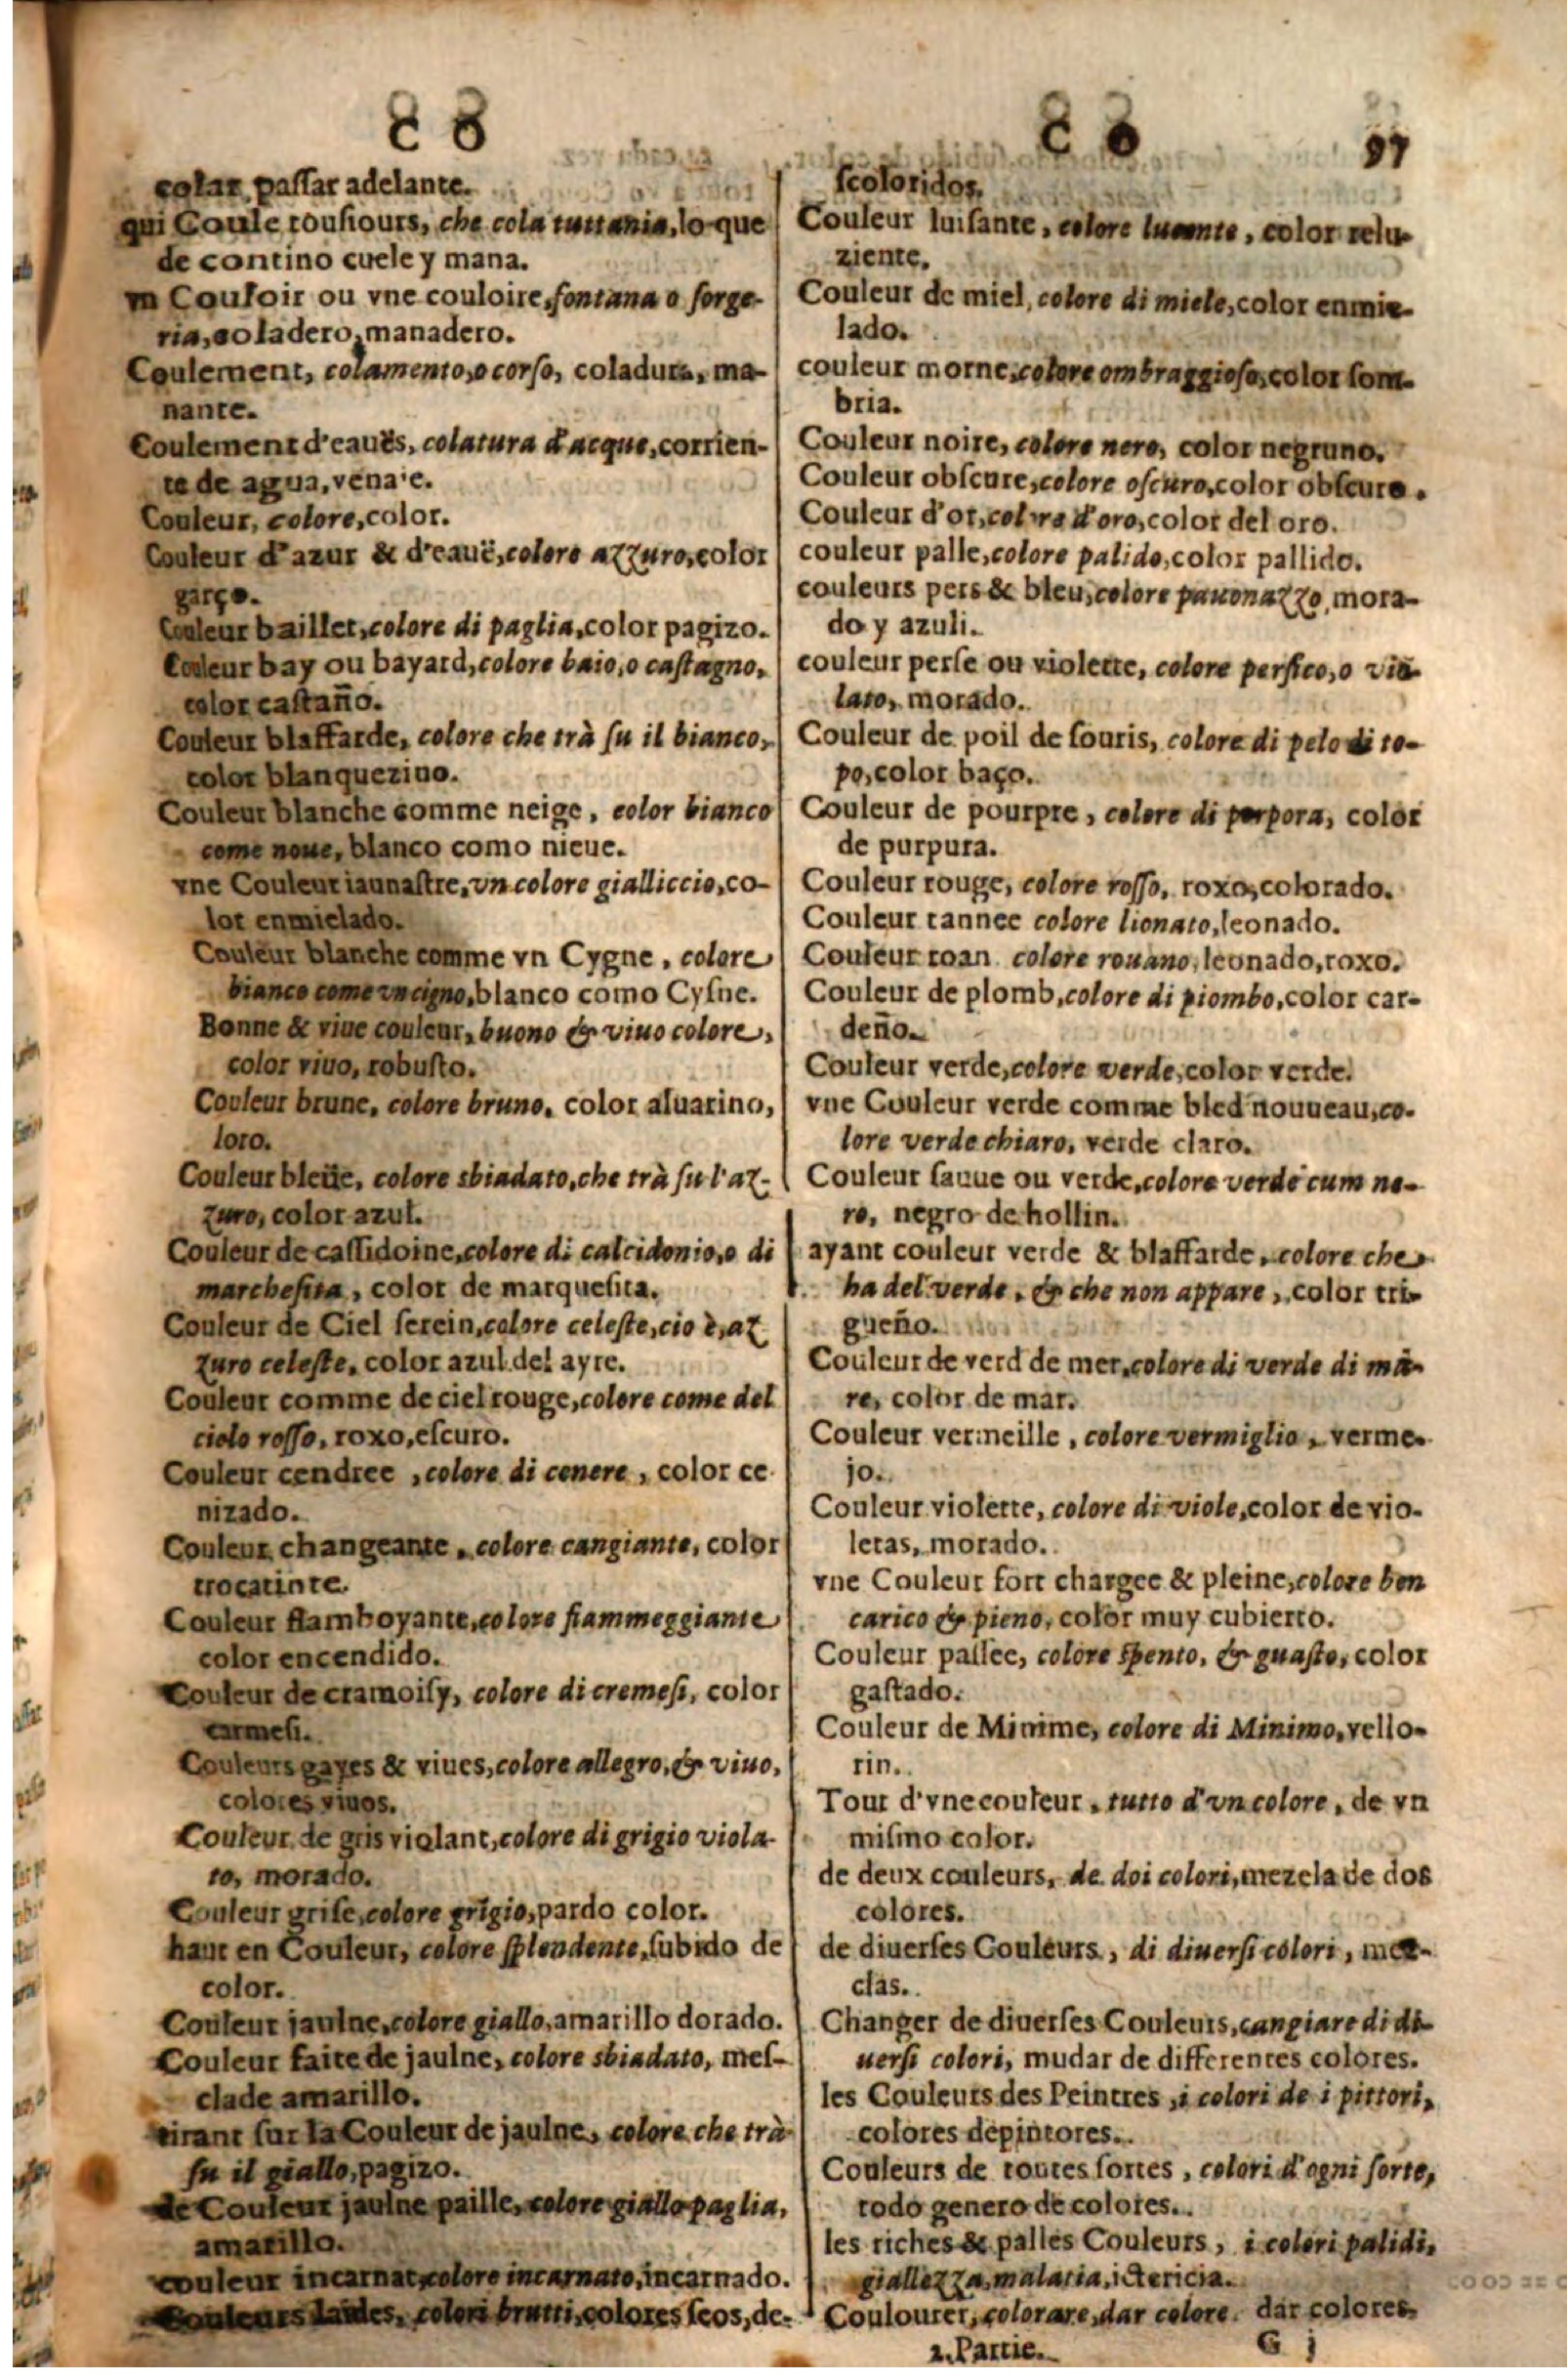 C O
C O 97
colar, passar adelante.
qui Coule tousiours, che cola tuttania, lo que
de contino cuele y mana.
vn Couloir ou vne couloire, fontana o sorge-
ria, coladero, manadero.
Coulement, colamento, o corso, coladura, ma-
nante.
Coulement d'eauës, colatura d'acque, corrien-
te de agua, venaie.
Couleur, colore, color.
Couleur d'azur & d'eauë, colore azzuro, color
garço.
Couleur baillet, colore di paglia, color pagizo.
Couleur bay ou bayard, colore baio, o castagno,
color castaño.
Couleur blaffarde, colore che trà su il bianco,
color blanquezino.
Couleur blanche comme neige, color bianco
come neue, blanco como nieue.
vne Couleur iaunastre, vn colore gialliccio, co-
lor enmielado.
Couleur blanche comme vn Cygne, colore
bianco come vn cigno, blanco como Cysne.
Bonne & viue couleur, buono & viuo colore,
color viuo, robusto.
Couleur brune, colore bruno, color aluarino,
loro.
Couleur bleüe, colore sbiadato, che trà su l'az-
zuro, color azul.
Couleur de cassidoine, colore di calcidonio, o di
marchesita, color de marquesita.
Couleur de Ciel serein, colore celeste, cio è, az
zuro celeste, color azul del ayre.
Couleur comme de ciel rouge, colore come del
cielo rosso, roxo, escuro.
Couleur cendree, colore di cenere, color ce
nizado.
Couleur changeante, colore cangiante, color
trocatinte.
Couleur flamboyante, colore fiammeggiante
color encendido.
Couleur de cramoisy, colore di cremesi, color
carmesi.
Couleurs gayes & viues, colore allegro, & viuo,
colores viuos.
Couleur de gris violant, colore di grigio viola-
to, morado.
Couleur grise, colore grigio, pardo color.
haut en Couleur, colore splendente, subido de
color.
Couleur jaulne, colore giallo, amarillo dorado.
Couleur faite de jaulne, colore sbiadato, mes-
clade amarillo.
tirant sur la Couleur de jaulne, colore che trà
su il giallo, pagizo.
de Couleur jaulne paille, colore giallo paglia,
amarillo.
couleur incarnat, colore incarnato, incarnado.
Couleurs laides, colori brutti, colores feos, de-
scoloridos.
Couleur luisante, colore lucente, color relu-
ziente.
Couleur de miel, colore di miele, color enmie-
lado.
couleur morne, colore ombraggioso, color som-
bria.
Couleur noire, colore nero, color negruno.
Couleur obscure, colore oscuro, color obscuro.
Couleur d'or, colore d'oro, color del oro.
couleur palle, colore palido, color pallido.
couleurs pers & bleu, colore pauonazzo, mora-
do y azuli.
couleur perse ou violette, colore persico, o vio-
lato, morado.
Couleur de poil de souris, colore di pelo di to-
po, color baço.
Couleur de pourpre, colore di porpora, color
de purpura.
Couleur rouge, colore rosso, roxo, colorado.
Couleur tannee colore lionato, leonado.
Couleur roan colore rouano, leonado, roxo.
Couleur de plomb, colore di piombo, color car-
deño.
Couleur verde, colore verde, color verde.
vne Couleur verde comme bled nouueau, co-
lore verde chiaro, verde claro.
Couleur sauue ou verde, colore verde cum ne-
ro, negro de hollin.
ayant couleur verde & blaffarde, colore che
ha del verde, & che non appare, color tri-
gueño.
Couleur de verd de mer, colore di verde di ma-
re, color de mar.
Couleur vermeille, colore vermiglio, verme-
jo.
Couleur violette, colore di viole, color de vio-
letas, morado.
vne Couleur fort chargee & pleine, colore ben
carico & pieno, color muy cubierto.
Couleur passee, colore spento, & guasto, color
gastado.
Couleur de Minime, colore di Minimo, vello-
rin.
Tout d'vne couleur, tutto d'vn colore, de vn
mismo color.
de deux couleurs, de doi colori, mezcla de dos
colores.
de diuerses Couleurs, di diuersi colori, mez-
clas.
Changer de diuerses Couleurs, cangiare di di-
uersi colori, mudar de differentes colores.
les Couleurs des Peintres, i colori de i pittori,
colores de pintores.
Couleurs de toutes sortes, colori d'ogni sorte,
todo genero de colores.
les riches & palles Couleurs, i colori palidi,
giallezza, malatia, ictericia.
Coulourer, colorare, dar colore. dar colores.
2. Partie. G j